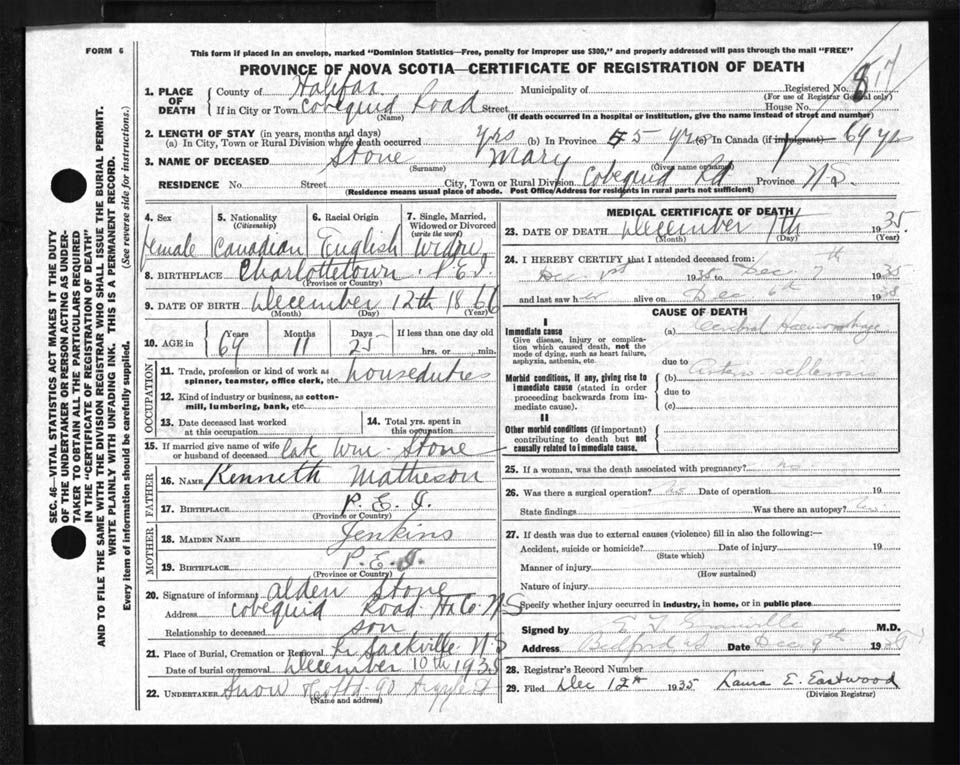 FORM 6
This form if placed in an envelope, marked "Dominion Statistics—Free, penalty for improper use $300," and properly addressed will pass through the mail "FREE"
PROVINCE OF NOVA SCOTIA—CERTIFICATE OF REGISTRATION OF DEATH
1. PLACE OF DEATH
County of Halifax Municipality of Registered No.
(For use of Registrar General only)
If in City or Town Cobequid Road Street House No.
(Name) (If death occurred in a hospital or institution, give the name instead of street and number)
2. LENGTH OF STAY (in years, months and days)
(a) In City, Town or Rural Division where death occurred yrs (b) In Province 55 yrs (c) In Canada (if immigrant) 69 yrs
3. NAME OF DECEASED Stone Mary
(Surname) (Given name or names)
RESIDENCE No. Street City, Town or Rural Division Cobequid Rd Province N.S.
(Residence means usual place of abode. Post Office Address for residents in rural parts not sufficient)
SEC. 46—VITAL STATISTICS ACT MAKES IT THE DUTY
OF THE UNDERTAKER OR PERSON ACTING AS UNDER-
TAKER TO OBTAIN ALL THE PARTICULARS REQUIRED
IN THE "CERTIFICATE OF REGISTRATION OF DEATH"
AND TO FILE THE SAME WITH THE DIVISION REGISTRAR WHO SHALL ISSUE THE BURIAL PERMIT.
WRITE PLAINLY WITH UNFADING INK. THIS IS A PERMANENT RECORD.
Every item of information should be carefully supplied. (See reverse side for instructions.)
4. Sex 5. Nationality (Citizenship) 6. Racial Origin 7. Single, Married, Widowed or Divorced (write the word)
female Canadian English Widow
8. BIRTHPLACE Charlottetown P.E.I.
(Province or Country)
9. DATE OF BIRTH December 12th 1866
(Month) (Day) (Year)
10. AGE in Years Months Days If less than one day old
69 11 25 hrs. or min.
OCCUPATION
11. Trade, profession or kind of work as spinner, teamster, office clerk, etc. houseduties
12. Kind of industry or business, as cotton-mill, lumbering, bank, etc.
13. Date deceased last worked at this occupation
14. Total yrs. spent in this occupation
15. If married give name of wife or husband of deceased late Wm. Stone
FATHER
16. NAME Kenneth Matheson
17. BIRTHPLACE P.E.I.
(Province or Country)
MOTHER
18. MAIDEN NAME Jenkins
19. BIRTHPLACE P.E.I.
(Province or Country)
20. Signature of informant Alden Stone
Address Cobequid Road Hx Co. N.S
Relationship to deceased son
21. Place of Burial, Cremation or Removal Lr Sackville N.S
Date of burial or removal December 10th 1935
22. UNDERTAKER Snow 90 Argyle St
(Name and address)
MEDICAL CERTIFICATE OF DEATH
23. DATE OF DEATH December 7th 1935
(Month) (Day) (Year)
24. I HEREBY CERTIFY that I attended deceased from:
Dec. 1st 1935 to Dec. 7th 1935
and last saw her alive on Dec 6th 1935
CAUSE OF DEATH
I
Immediate cause
Give disease, injury or complication which caused death, not the mode of dying, such as heart failure, asphyxia, asthenia, etc.
(a) Cerebral Haemorrhage
due to
Morbid conditions, if any, giving rise to immediate cause (stated in order proceeding backwards from immediate cause).
(b) Arterio sclerosis
due to
(c)
II
Other morbid conditions (if important) contributing to death but not causally related to immediate cause.
25. If a woman, was the death associated with pregnancy? no
26. Was there a surgical operation? no Date of operation 19
State findings Was there an autopsy? no
27. If death was due to external causes (violence) fill in also the following:—
Accident, suicide or homicide? Date of injury 19
(State which)
Manner of injury
(How sustained)
Nature of injury
Specify whether injury occurred in industry, in home, or in public place
Signed by E. Granville M.D.
Address Bedford, N.S. Date Dec. 9th 1935
28. Registrar's Record Number
29. Filed Dec 12th 1935 Laura E. Eastwood
(Division Registrar)